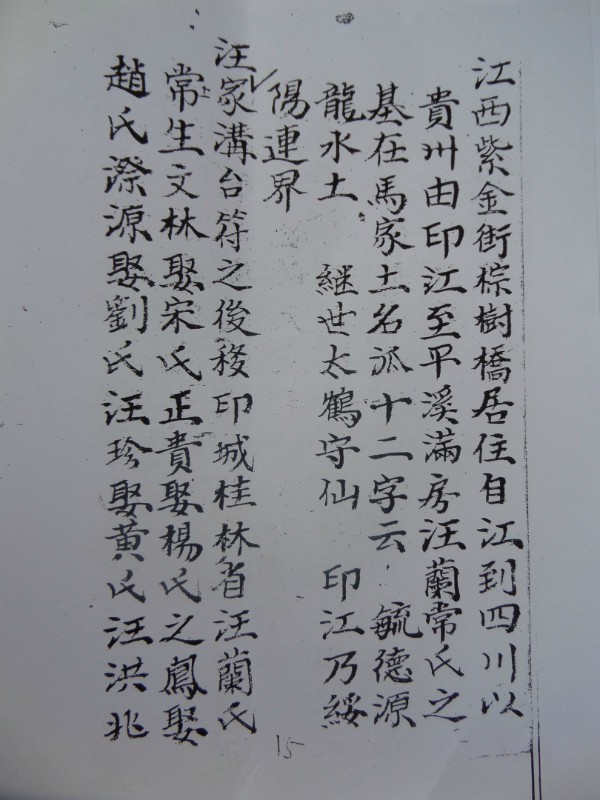 江西紫金街棕樹橋居住自江到四川以
貴州由印江至平溪滿房汪蘭常氏之
基在馬家土名派十二字云 毓德源
龍水土 継世太鶴守仙 印江乃綏
陽連界
汪家溝台符之後移印城桂林省汪蘭氏
常上生文林娶宋氏正貴娶楊氏之鳳娶
趙氏潦源娶劉氏汪珍娶黄氏汪洪兆
15